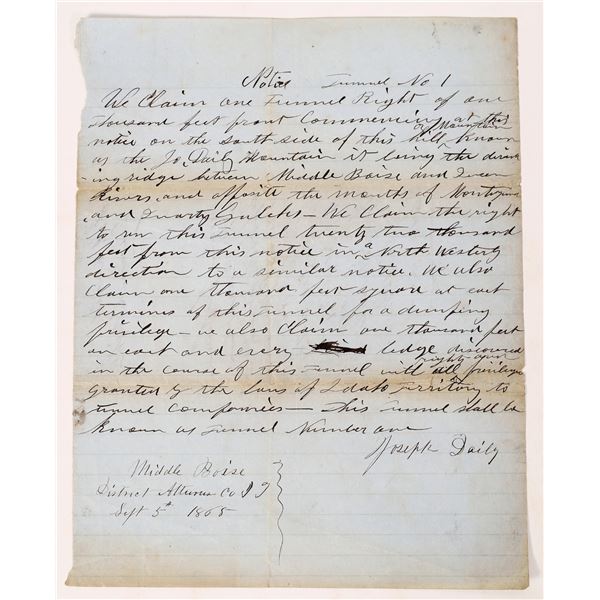 Notice Tunnel No 1
We Claim one Tunnel Right of one
thousand feet front Commencing at this
notice on the South side of this hill or Mountain known
as the Jo. Daily Mountain it being the divid
ing ridge between Middle Boise and Queens
Rivers, and opposite the mouths of Montezuma
and Quartz Gulchs – We Claim the right
to run this Tunnel twenty two thousand
feet from this notice in a North Westerly
direction to a similar notice. We also
Claim one thousand feet square at each
terminus of this Tunnel for a dumping
privilege – we also Claim one thousand feet
on each and every ledge discovered
in the course of this Tunnel with all rights and privileges
granted by the laws of Idaho Territory to
tunnel companies – This Tunnel shall be
known as Tunnel Number one
Joseph Daily
Middle Boise
District Alturas Co I T
Sept 5th 1865